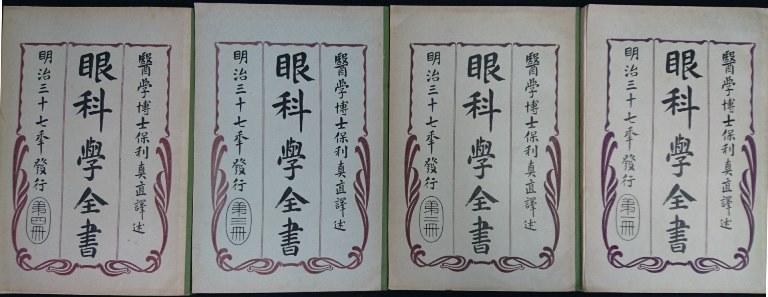 醫學博士保利真直譯述
眼科學全書
明治三十七年發行
第一冊
醫學博士保利真直譯述
眼科學全書
明治三十七年發行
第二冊
醫學博士保利真直譯述
眼科學全書
明治三十七年發行
第三冊
醫學博士保利真直譯述
眼科學全書
明治三十七年發行
第四冊